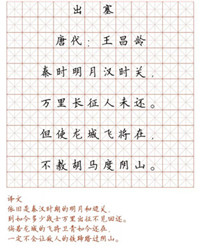 出塞
唐代：王昌龄
秦时明月汉时关，
万里长征人未还。
但使龙城飞将在，
不教胡马度阴山。
译文
依旧是秦汉时期的明月和边关，
到如今多少战士万里出征不见回还。
倘若龙城的飞将卫青如今还在，
一定不会让敌人的铁蹄踏过阴山。